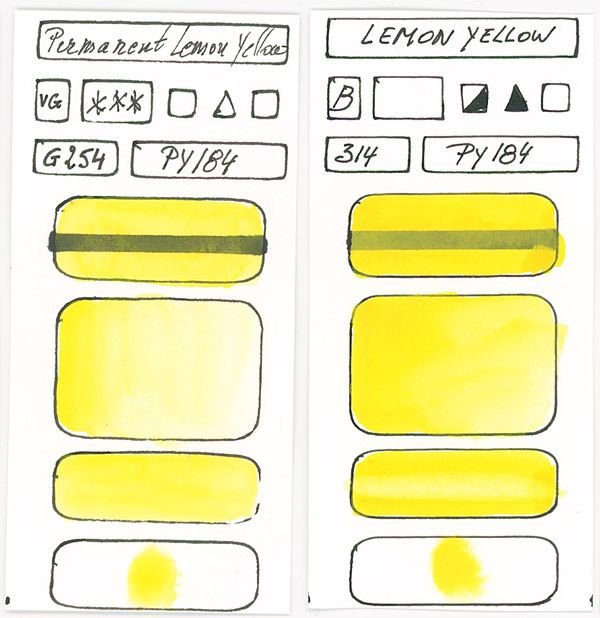 Permanent Lemon Yellow
VG ***
G254 PY184
LEMON YELLOW
B
314 PY184